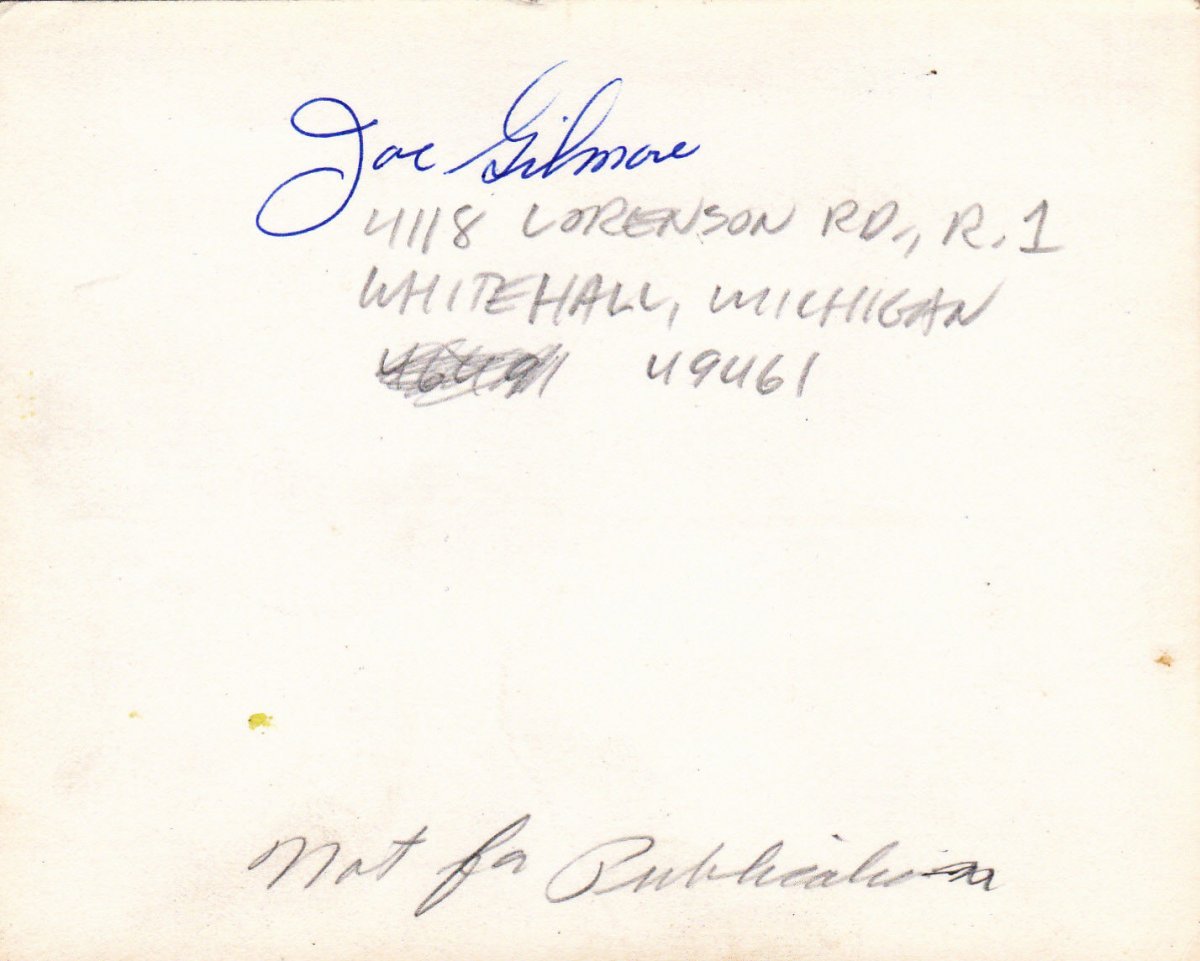 Joe Gilmore
4118 LORENSON RD., R. 1
WHITEHALL, MICHIGAN
49461
Not for Publication